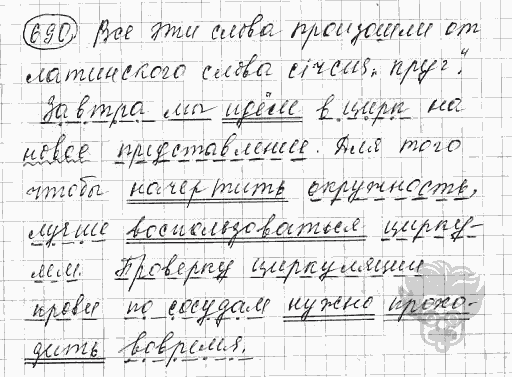 690. Все эти слова произошли от
латинского слова circus „круг“.
Завтра мы идём в цирк на
новое представление. Для того
чтобы начертить окружность,
лучше воспользоваться цирку-
лем. Проверку циркуляции
крови по сосудам нужно прохо-
дить вовремя.